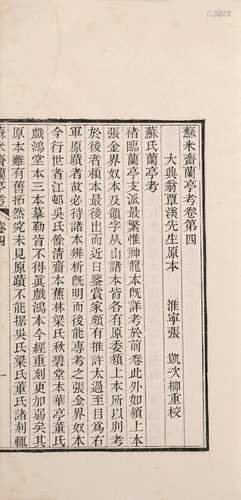 蘇米齋蘭亭考卷第四
大興翁覃溪先生原本　淮寧張　凱次柳重校
蘇氏蘭亭考
褚臨蘭亭支派最繁惟神龍本旣詳考於前卷此外如潁上本
張金界奴本及領字从山諸本皆各有原委潁上本所以別考
於後者以潁本最後出而近日鑒賞家頗有推許太過至目爲右
軍原蹟者故必待諸本辨析旣明而後能專考之張金界奴本
今行世者江邨吳氏餘清齋本蕉林梁氏秋碧堂本華亭董氏
戲鴻堂本三本摹勒皆不得眞戲鴻本今經重刻更加弱矣其
原本雖有舊拓然究未見原蹟不能據吳氏梁氏董氏諸刻輒
蘇米齋蘭亭考　卷四